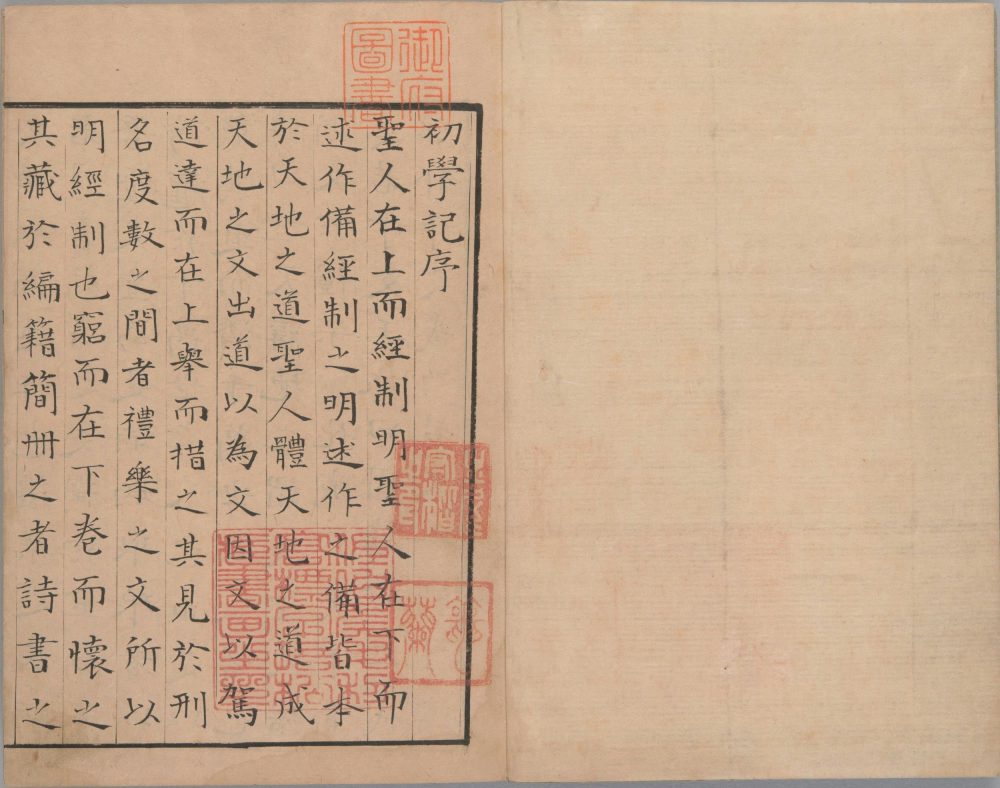 初學記序
聖人在上而經制明聖人在下而
述作備經制之明述作之備皆本
於天地之道聖人體天地之道成
天地之文出道以為文因文以駕
道達而在上舉而措之其見於刑
名度數之間者禮樂之文所以
明經制也窮而在下卷而懷之
其藏於編籍簡冊之者詩書之
御府圖書